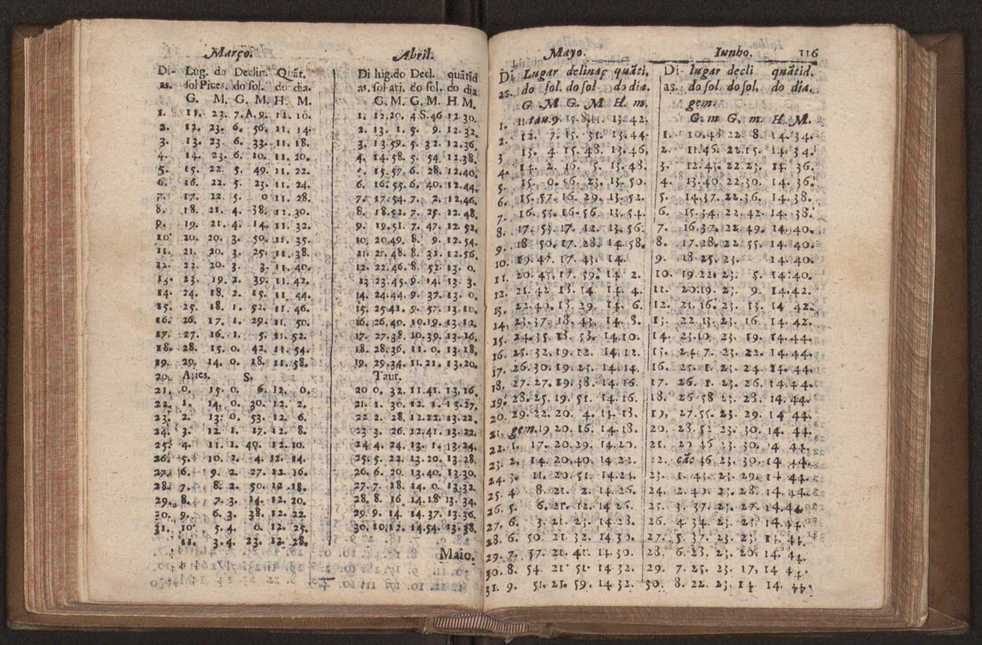 Março. Abril.
Di- Lug. do Declin. Quãt. Di lug. do Decl. quãtid
as. sol Pices. do sol. do dia. as. sol ati. do sol. do dia
G. M. G. M. H. M. G. M. G. M. H M.
1. 11. 23. 7. A, 9. 11. 10. 1. 12.20. 4 S.46 12.30.
2. 12. 23. 6. 56. 11. 14. 2. 13. 1. 5. 9. 12.32.
3. 13 23. 6. 33. 11. 18. 3. 13.59. 5. 32. 12.36.
4. 14. 23. 6. 10. 11. 20. 4. 14.58. 5. 54. 12.38.
5. 15. 22. 5. 49. 11. 22. 15.57. 6. 28. 12.40.
6. 16. 22. 5. 23. 11. 24. 6. 16.55. 6. 40. 12.44.
7. 17. 22. 5. 0 11. 28. 7. 17.54. 7. 2. 12.46.
8. 18. 21. 4. 38. 11. 30. 8. 18.52. 7. 25. 12.48.
9. 19. 21. 4. 14. 11. 32. 9. 19.51. 7. 47. 12.52.
10 20. 20. 3. 50. 11. 35. 10. 20.49. 8. 9. 12.54.
11. 21. 20. 3. 25. 11. 38. 11. 21.48. 8. 31. 12.56.
12. 22. 20. 3. 3. 11. 40. 12. 22.46. 8. 52. 13. 0.
13. 23. 19. 2. 39. 11. 42. 13 23.45. 9. 14. 13. 3.
14. 24. 18. 2. 15. 11. 44. 14. 24.44. 9. 37. 13. 0.
15. 25. 18. 1. 52. 11. 46. 15. 25.41. 9. 57. 13.10.
16. 26. 17. 1. 29. 11. 50. 16. 26.40. 10.19. 13.12.
17. 27. 16. 1. 5. 11. 52. 17. 27.38. 10.39. 13.16.
18. 28. 15. 0. 42. 11. 54. 18. 28.36. 11. 0. 13.18.
19. 29. 14. 0. 18. 11. 58. 19. 29.34. 11.21. 13.20.
20. Aries. S. Taur.
21. 0. 15. 0. 6. 12. 0. 20 0. 32. 11.41. 13.16.
22. 1. 14. 0. 30. 12. 2. 21. 1. 30. 12. 1. 13.27.
23. 2. 13. 0. 53. 12. 6. 22. 2. 28. 12.22. 13.22.
24. 3. 12. 1. 17. 12. 8. 23 3. 26. 12.41. 13.22.
25. 4. 11. 1. 40. 12. 10. 24. 4. 24. 13. 1. 13.24.
26. 5. 10. 2. 4. 12. 14. 25. 5. 22. 13.20. 13.28.
27. 6. 9. 2. 27. 12. 16. 26. 6. 20. 13.40. 13.30.
28. 7. 8. 2. 50. 12. 18. 27. 7. 18. 14. 0. 13.32.
29. 8. 7. 3. 14. 12. 20. 28. 8. 16. 14.18 13. 34.
30. 9. 6. 3. 38. 12. 22. 29. 9. 14. 14.37. 13.36.
31. 10. 5. 4. 0. 12. 25. 30. 10.12. 14.54. 13.38.
11. 3. 4. 23. 12. 28.
Maio.
Mayo. Iunho. 116
Di Lugar delinaç quãti, Di- lugar decli quãtid.
as. do sol. do sol do dia as. do sol. do sol. do dia.
G. M G. M H. m. gem.
tau. 9. 15. 13.42. G. m G. m H M.
1. 12. 7. 15. 31. 13.44. 1. 10.48 22. 8. 14.34.
2. 13. 4 15. 48. 13.46, 2. 11.46. 22.15. 14 34.
3. 14. 2. 16. 5. 13.48. 3. 12.43. 22 23. 14 36.
4. 15. 0. 16. 23. 13. 50. 4. 13.40 22.30. 14. 36.
5. 15.57. 16. 29. 13.52. 5. 14.37. 22.36. 14.38.
6. 16. 55. 16.56. 13.54. 6. 15.34. 22.42. 14. 38.
7. 17. 53. 17. 12. 13.56. 7. 16.37. 22.49. 14.40.
8. 18 50. 17. 28. 14.58. 8. 17.28. 22 55. 14.40.
9. 19.47. 17. 43. 14. 9. 18.25. 23. 14.40.
10. 20.45. 17. 59. 14. 2. 10. 19.22. 23. 5. 14.40.
11. 21. 42 18. 14 14. 4. 11. 20.19. 23. 9. 14.42.
12. 22.40. 18. 29. 14. 6. 12. 21.16. 23. 13. 14 42.
13. 23.37. 18.43. 14. 8. 13. 22. 13. 23. 16. 14.42.
14. 24.35. 18. 58. 14.10. 14. 23.10. 23. 19. 14.44.
15. 25. 32. 19. 12. 14.12. 15. 24. 7. 23. 22. 14.44.
16. 26.30. 19.25. 14.14. 16. 25. 1. 23. 24. 14.44.
17. 27.27. 19.38. 14.16. 17. 26. 1. 23. 26. 14.44.
18. 28.25. 19.51. 14.16. 18. 26 58 23. 28. 14.44.
19. 29.22. 20. 4. 13. 13. 19, 27.55. 23. 29. 14 44.
20. gem. 19 20. 16. 14.18. 20. 28. 52. 23. 30. 14 44.
21. 1. 17. 20.29. 14.20. 21. 29 46 23. 30. 4 44.
22. 2. 14. 20.40. 14 22. 22. cão 46 23. 30. 14 44.
23. 3. 11. 20.51. 14.24. 23. 1. 43. 23. 29. 14 44.
24. 4 8. 21. 2. 14.26. 24. 2. 40. 23. 28. 14. 44.
25. 5. 6. 21. 12. 14 26. 25. 3. 37. 23. 27. 14.44.
26. 6. 3. 21. 23. 14 28. 26. 4 34. 23. 25. 14. 44.
27. 6. 50 21 32. 14 30. 27. 5. 37. 23. 23. 14. 44.
28. 7. 57. 21. 41. 14 30. 28. 6. 28. 23. 20. 14 44.
29. 8. 54 21 51 14 32. 29. 7. 25. 23. 17. 14 44.
30. 9. 51. 21. 59. 14. 32. 30. 8. 22. 23. 14 14. 44.
31.